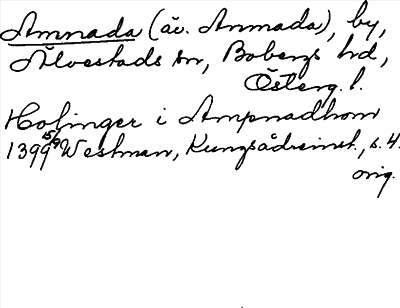 Amnada (äv. Anmada), by,
Älvestads sn, Bobergs hd,
Österg. l.
Holinger i Ampnadhom
1399 15/9 Westman, Kungsådreinst., s. 4.
orig.